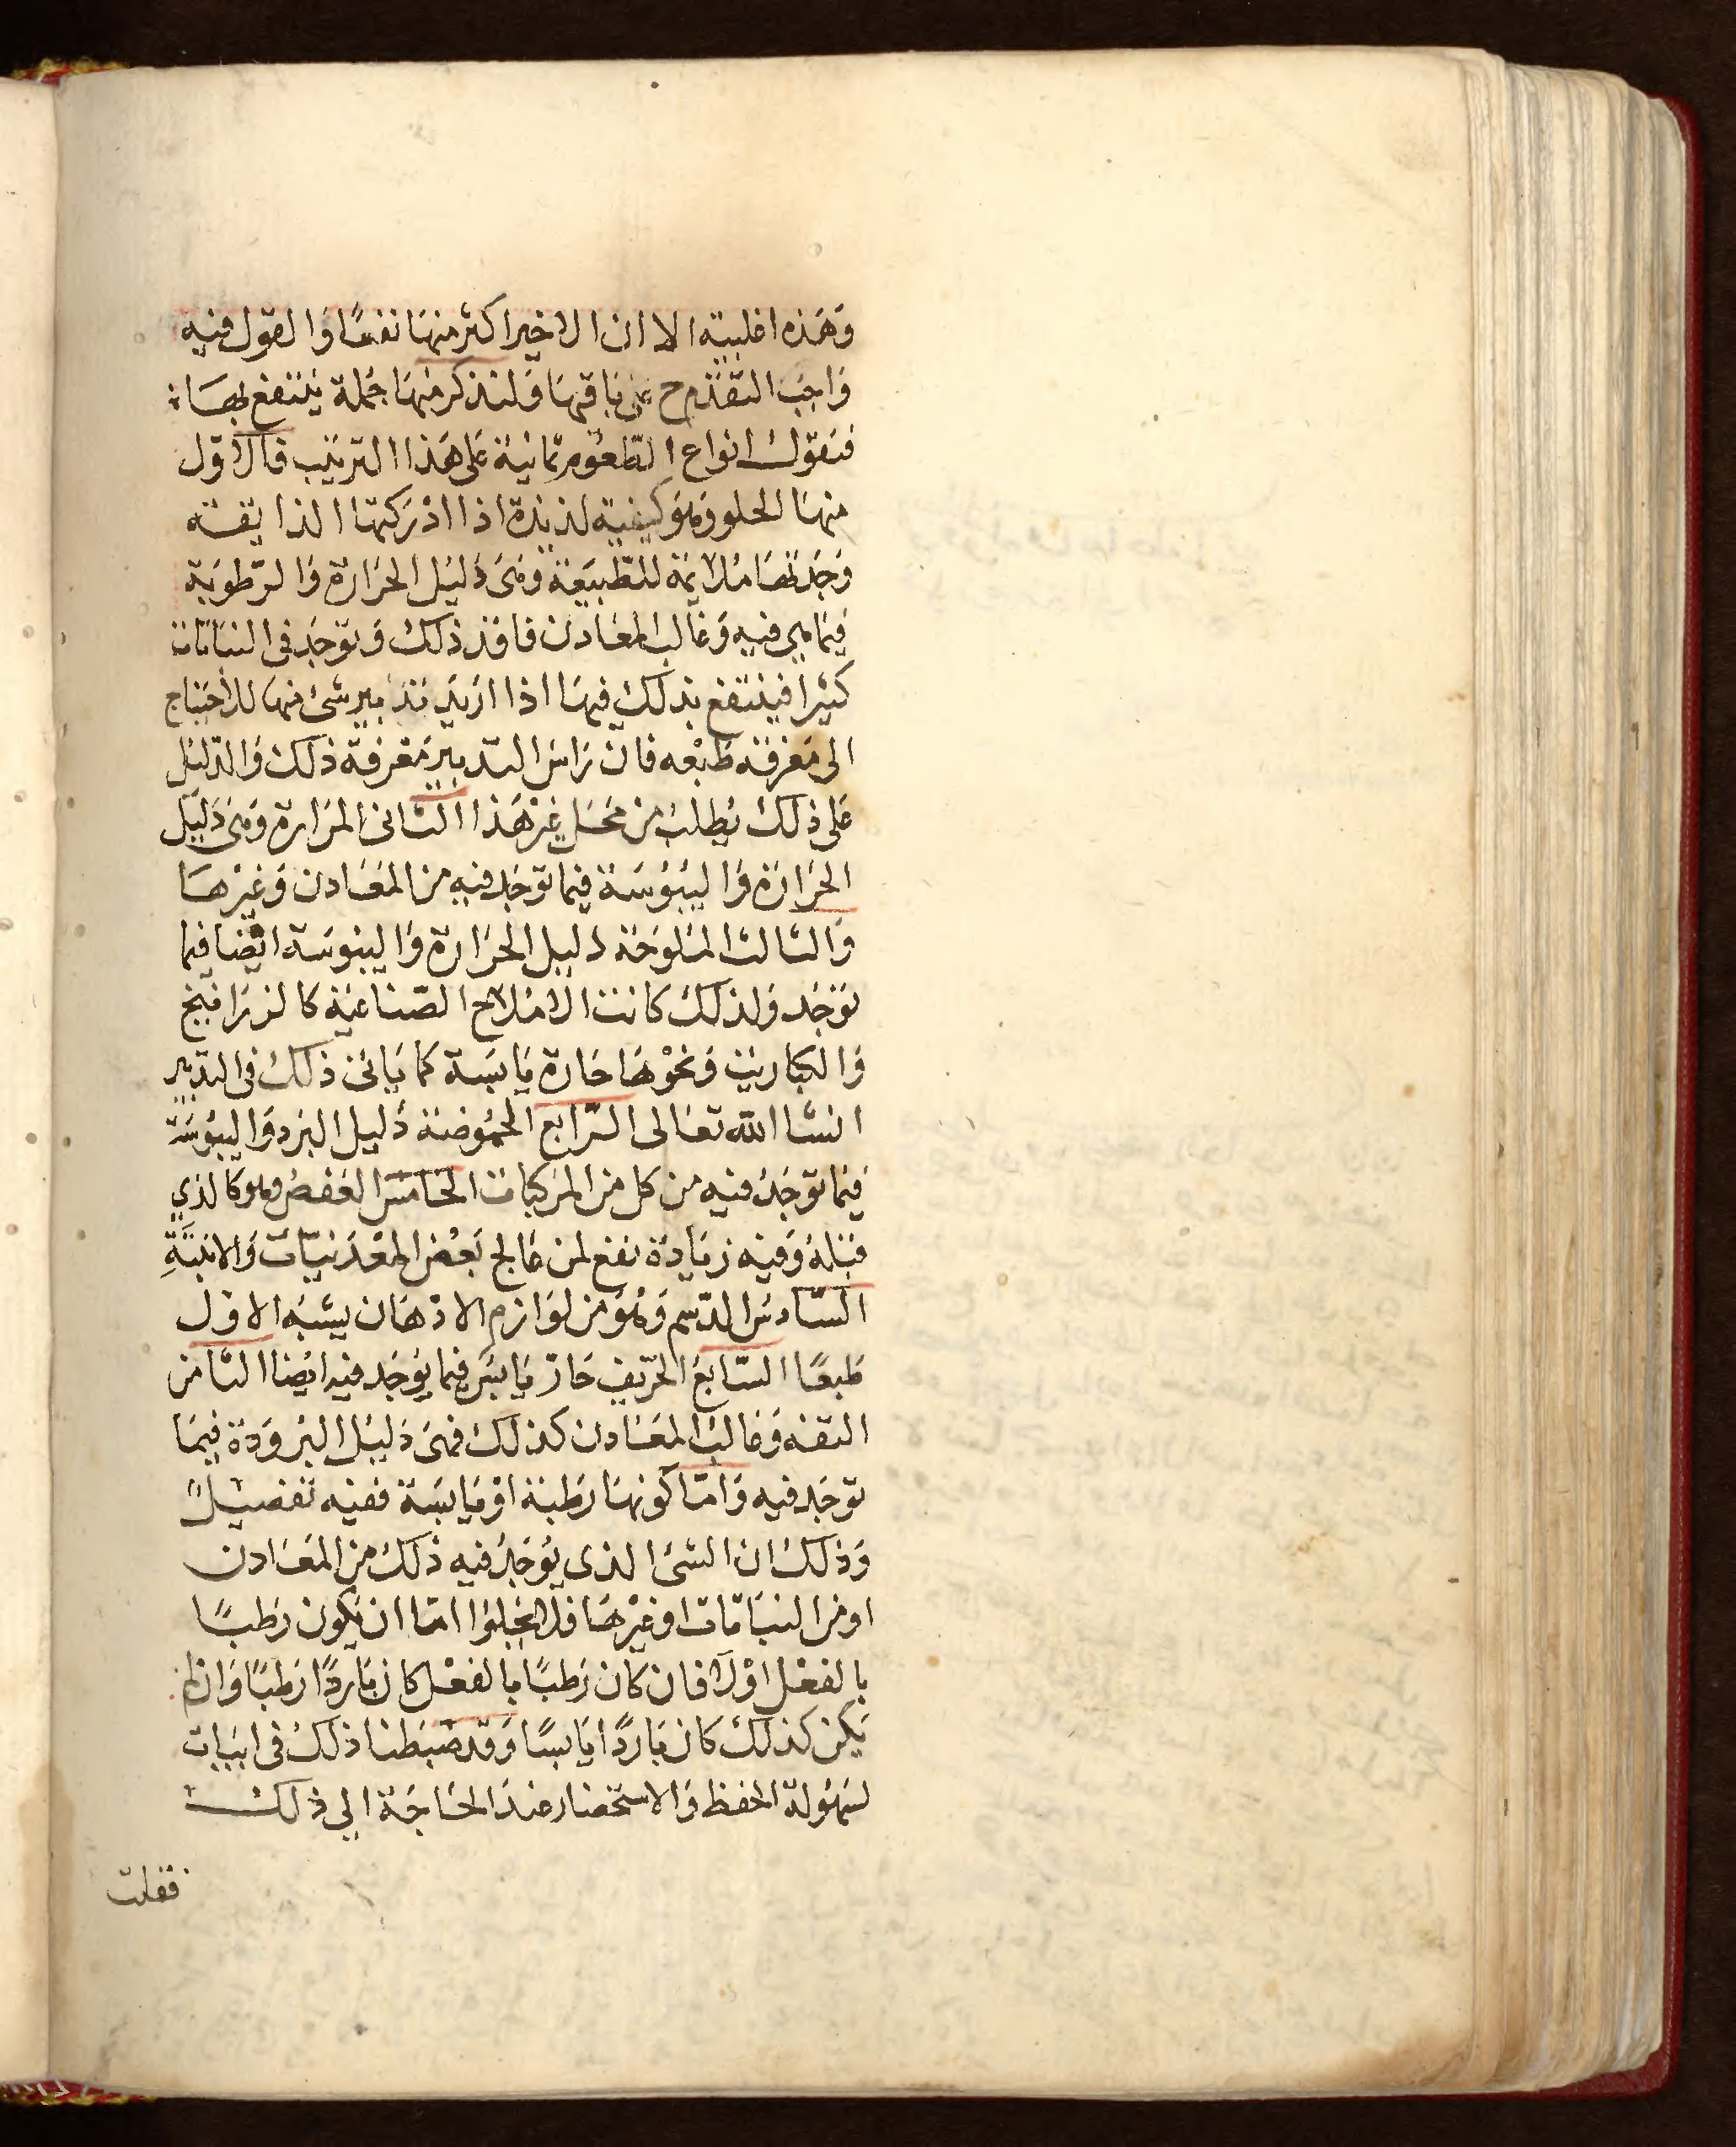 وهذه اغلبية الا ان الاخير اكثر منها نفعا والقول فيه
واجب التقدم ح على باقيها ولنذكر منها جملة ينتفع بها
فنقول انواع الطعوم ثمانية على هذا الترتيب فالاول
منها الحلو وهو كيفية لذيذة اذا ادركتها الذايقة
وجدتها ملايمة للطبيعة وهى دليل الحرارة والرطوبة
فيما هي فيه وغالب المعادن فاقد ذلك وتوجد فى النباتات
كثيرا فينتفع بذلك فيها اذا اريد تدبير شئ منها للاحتياج
الى معرفة طبعه فان راس التدبير معرفة ذلك والدليل
على ذلك يطلب من محل غير هذا الثانى المرارة وهى دليل
الحرارة واليبوسة فيما توجد فيه من المعادن وغيرها
والثالث الملوحة دليل الحرارة واليبوسة ايضا فيما
توجد ولذلك كانت الاملاح الصناعية كالزرانيخ
والكباريت ونحوها حارة يابسة كما ياتى ذلك فى التدبير
انشا الله تعالى الرابع الحموضة دليل البرد واليبوسة
فيما توجد فيه من كل من المركبات الخامس العفص وهو كالذي
قبله وفيه زيادة نفع لمن عالج بعض المعدنيات والانبتة
السادس الدسم وهو من لوازم الادهان يشبه الاول
طبعا السابع الحريف حار يابس فيما يوجد فيه ايضا الثامن
التفه وغالب المعادن كذلك فهى دليل البرودة فيما
توجد فيه واما كونها رطبة او يابسة ففيه تفصيل
وذلك ان الشئ الذى يوجد فيه ذلك من المعادن
او من النباتات او غيرها فلا يخلوا اما ان يكون رطبا
بالفعل اولا فان كان رطبا بالفعل كان باردا رطبا وان لم
يكن كذلك كان باردا يابسا وقد ضبطنا ذلك فى ابيات
لسهولة الحفظ والاستحضار عند الحاجة الي ذلك
فقلت